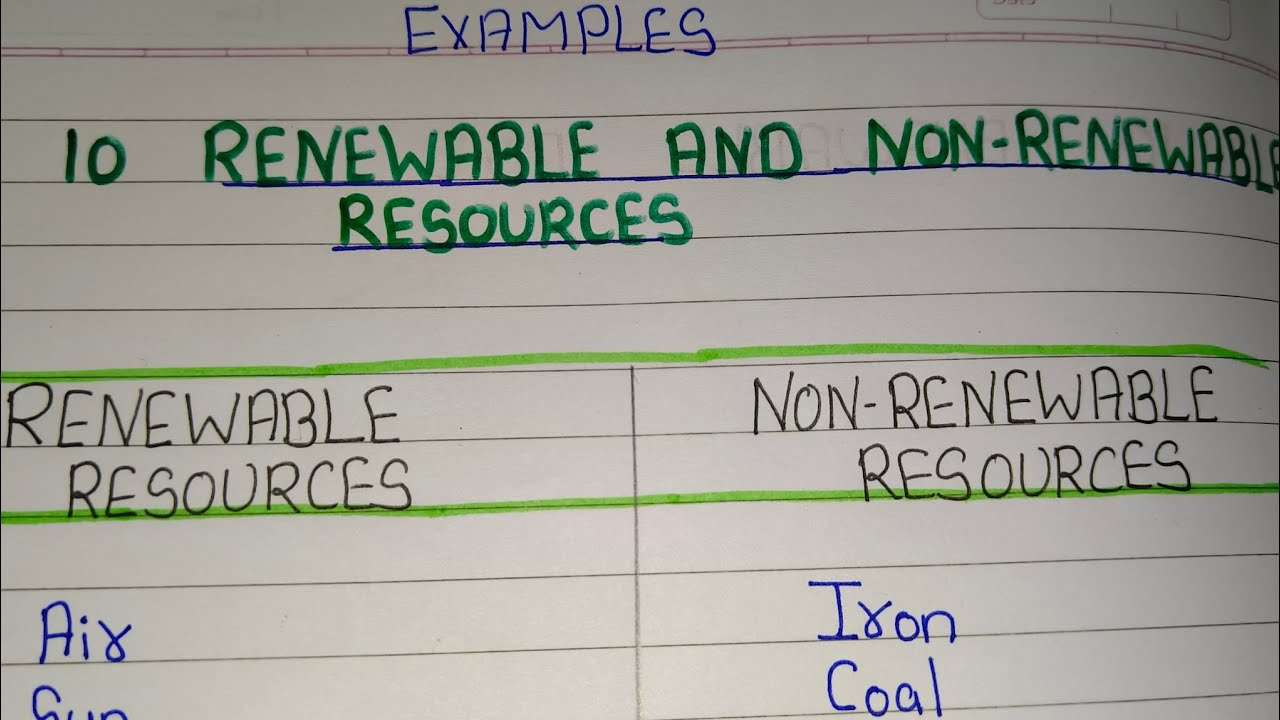 EXAMPLES
10 RENEWABLE AND NON-RENEWABLE
RESOURCES
RENEWABLE
RESOURCES
NON-RENEWABLE
RESOURCES
Air
Iron
Sun
Coal